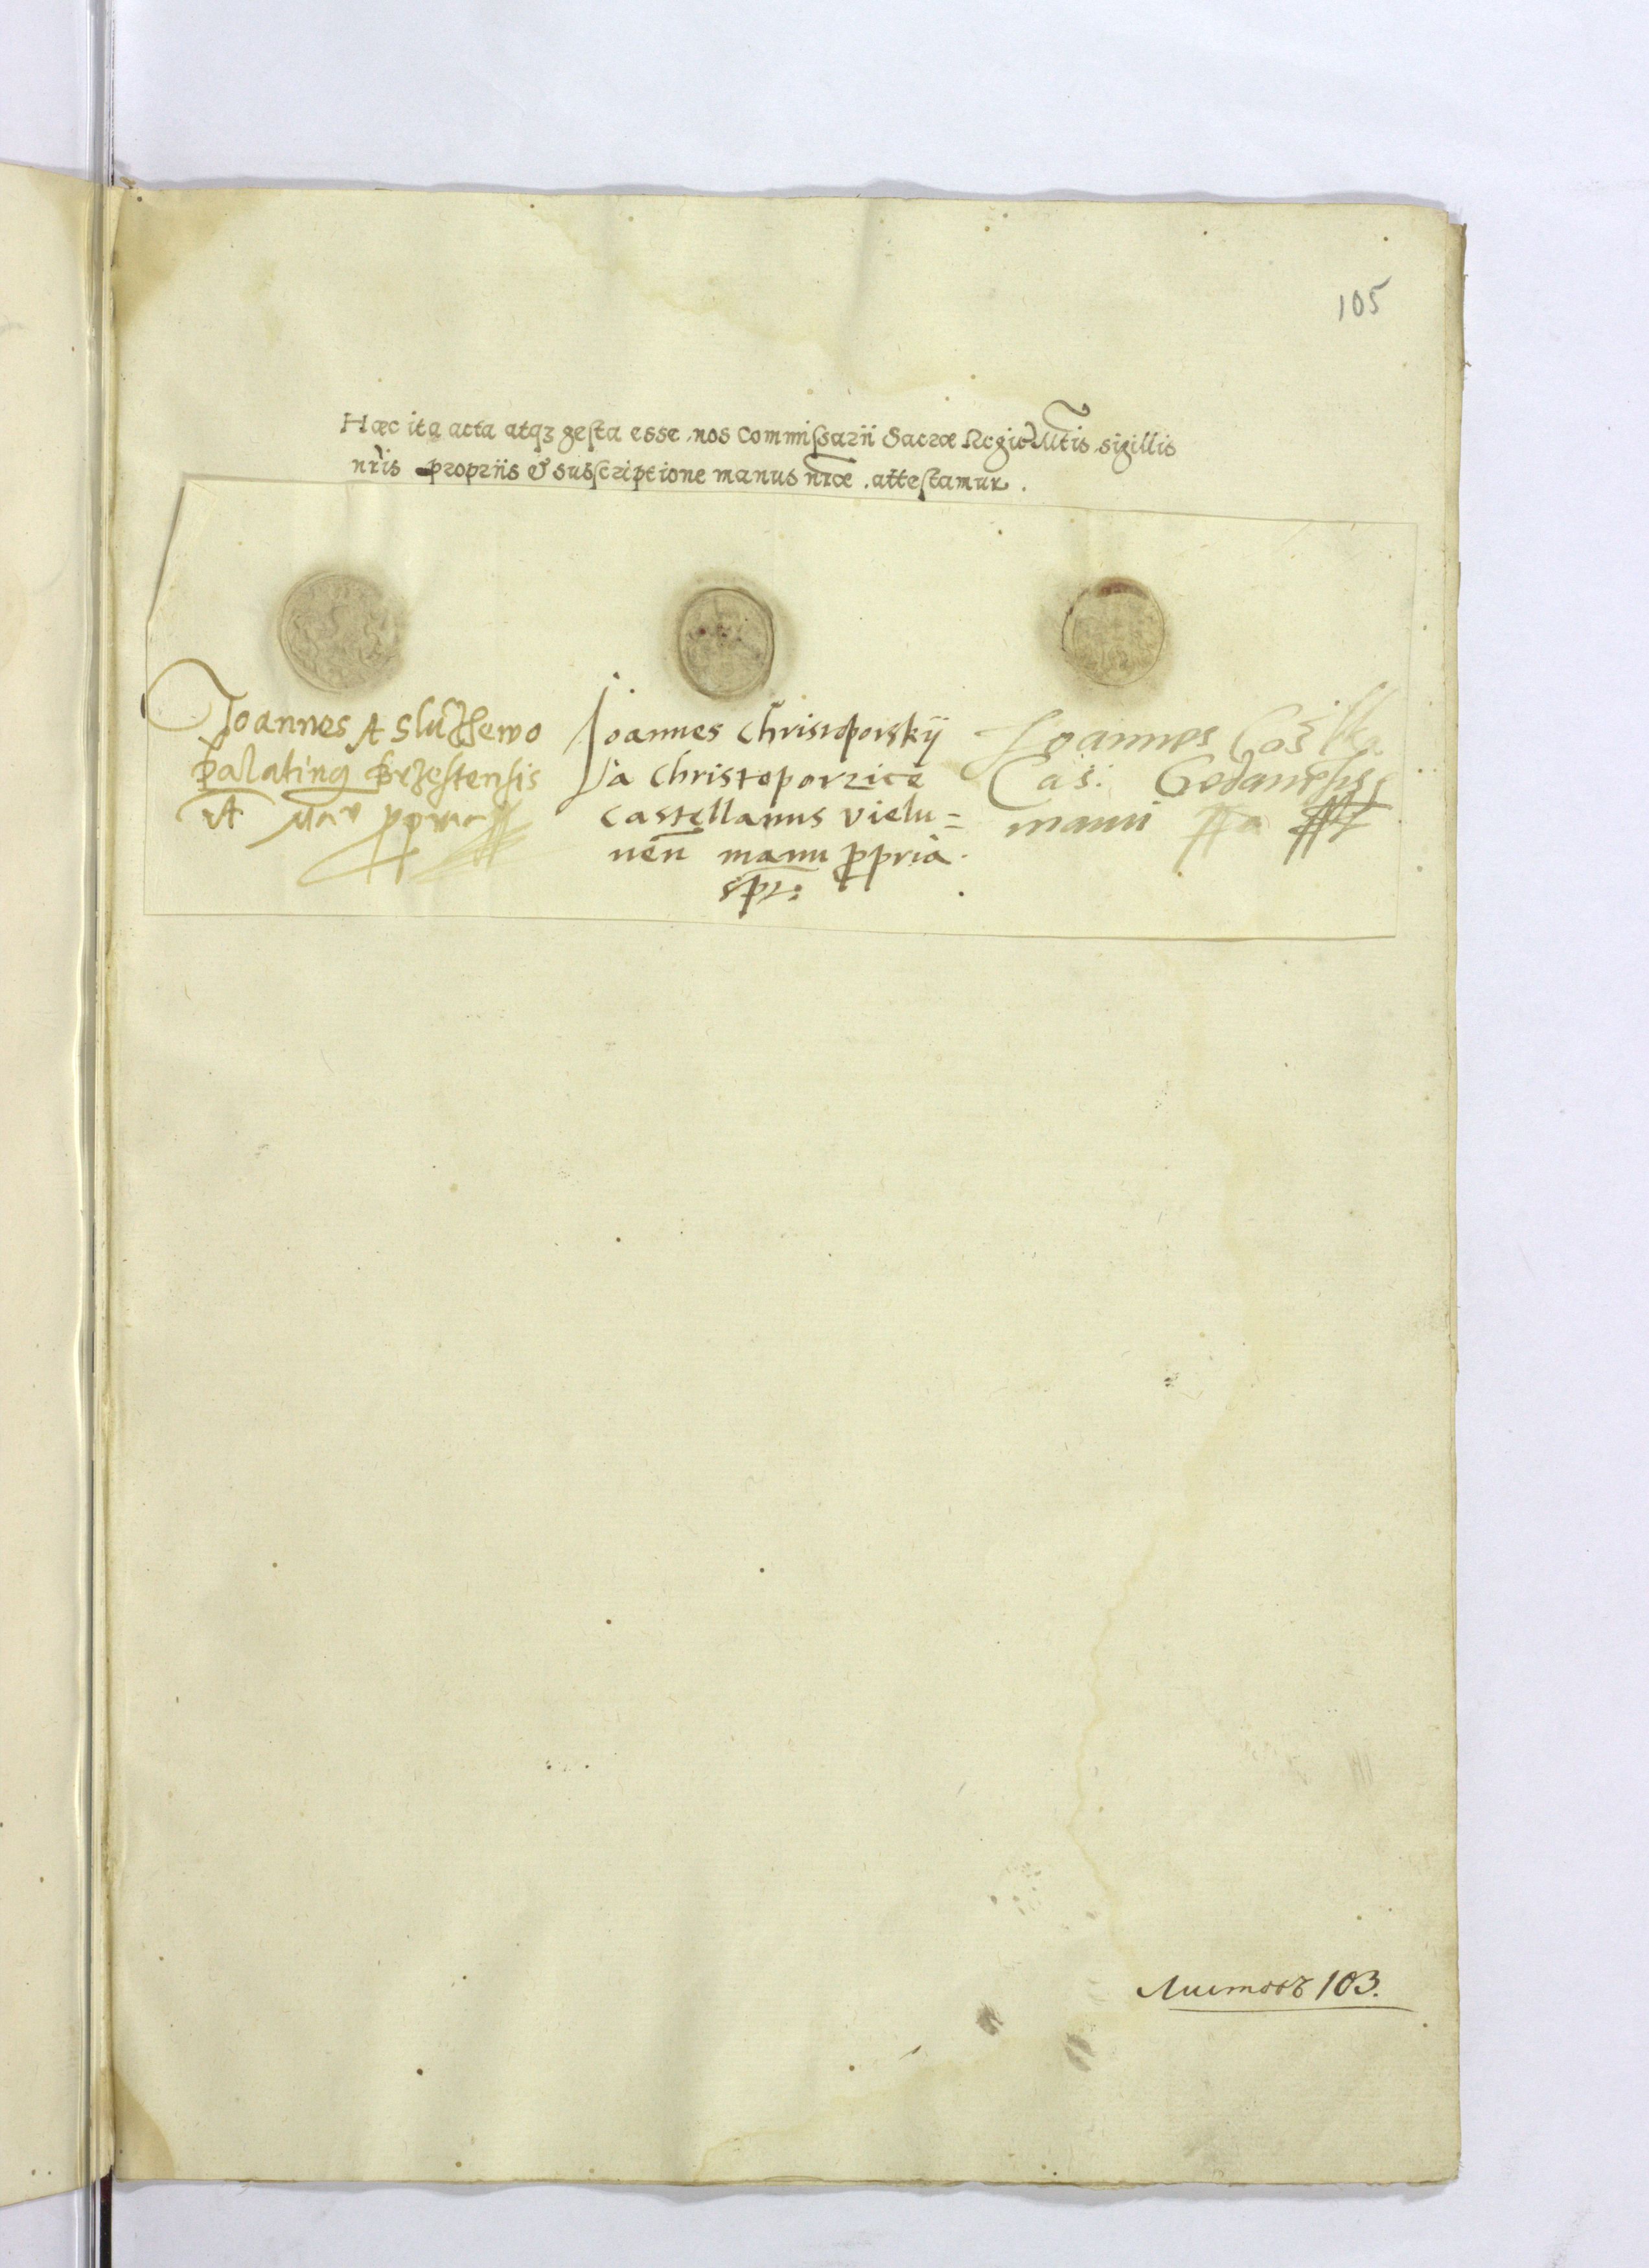 105
Hæc ita acta atqȝ gesta esse, nos Commissarii Sacræ Regiæ Mtis sigillis
nris propriis & subscriptione manus nræ attestamur.
Joannes A Sluzewo
palatinꝯ Brzestensis
manu ppria
Joannes Christoporskÿ
a Christoporzice
castellanus vielu=
nen manu ppria.
spt:
Joannes Costka
Cas: Gedanēsis
manu ppa
Листовъ 103.